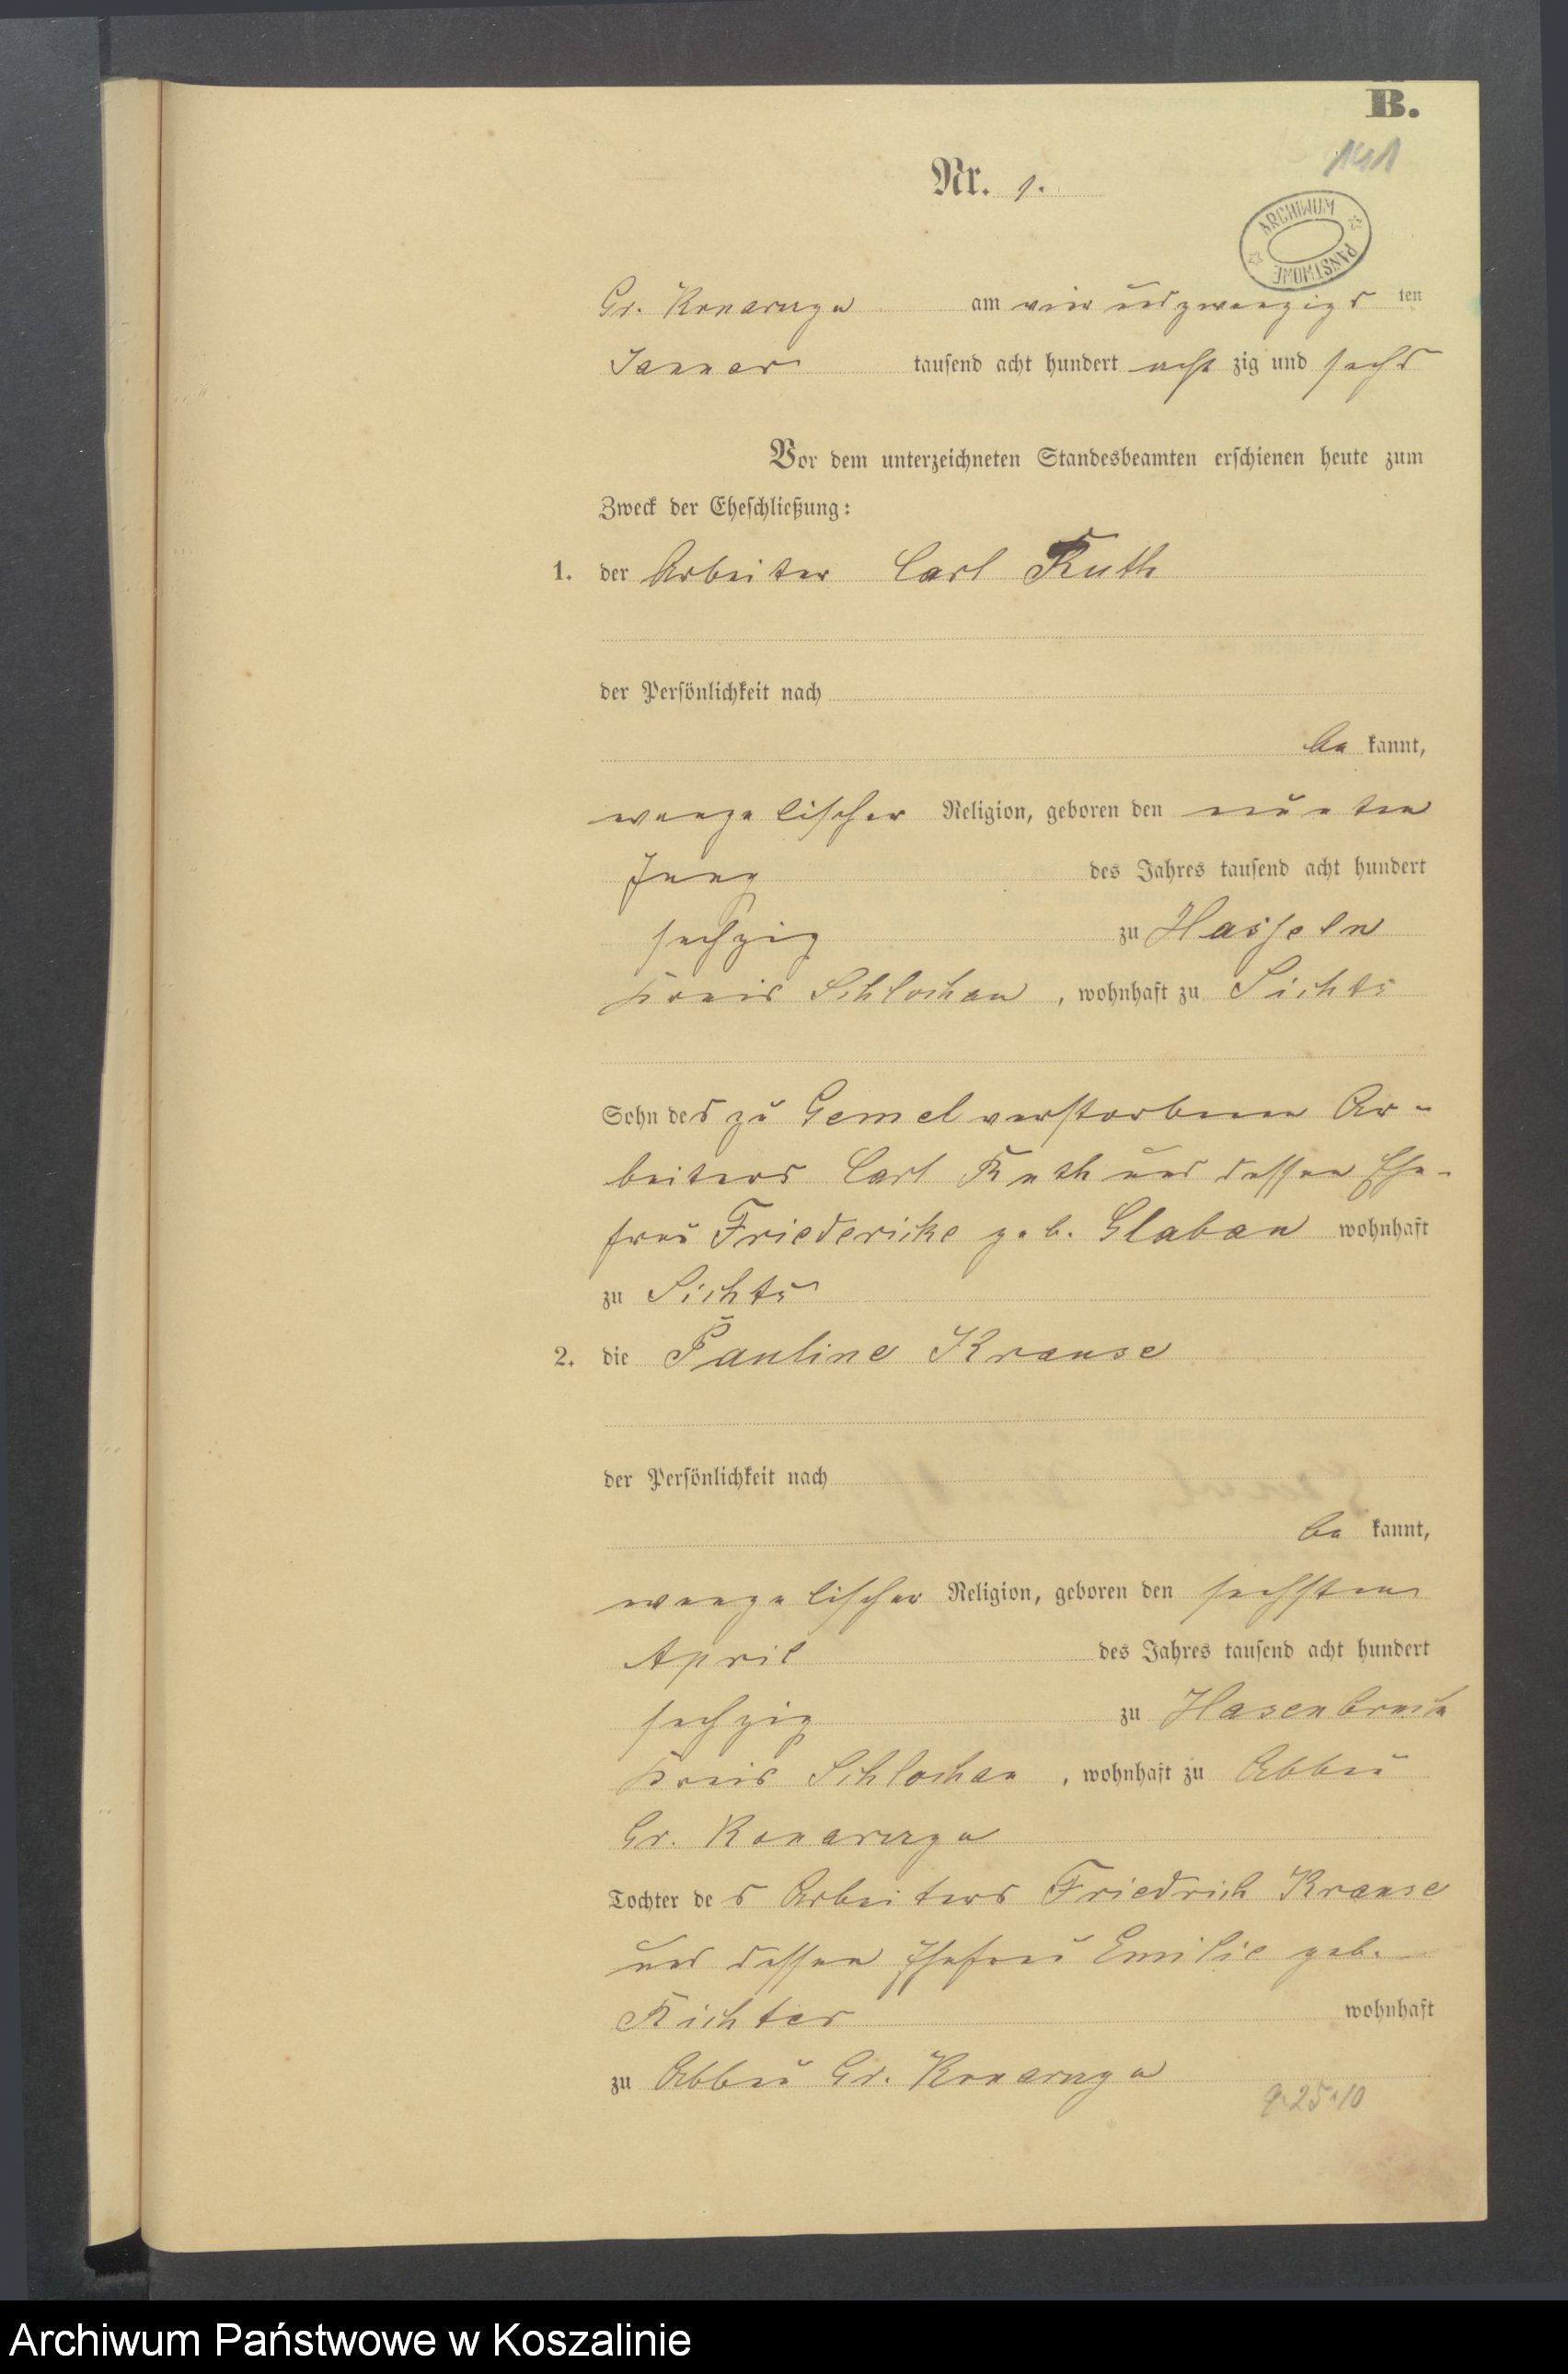 B.
141
Nr. 1.
ARCHIWUM PAŃSTWOWE
Gr. Konarczyn am vier und zwanzigs ten
Januar tausend acht hundert acht zig und sechs
Vor dem unterzeichneten Standesbeamten erschienen heute zum
Zweck der Eheschließung:
1. der Arbeiter Carl Ruth
der Persönlichkeit nach
be kannt,
evangelischer Religion, geboren den neunten
des Jahres tausend acht hundert
sechzig zu Hasseln
Kreis Schlochau, wohnhaft zu Sichts
Sohn des zu Gemel verstorbenen Ar-
beiters Carl Ruth und dessen Ehe-
frau Friedericke geb. Glaban wohnhaft
zu Sichts
2. die Pauline Krause
der Persönlichkeit nach
be kannt,
evangelischer Religion, geboren den sechsten
April des Jahres tausend acht hundert
sechzig zu Hasenbruch
Kreis Schlochau, wohnhaft zu Abbau
Gr. Konarczyn
Tochter des Arbeiters Friedrich Krause
und dessen Ehefrau Emilie geb.
Richter wohnhaft
zu Abbau Gr. Konarczyn
Archiwum Państwowe w Koszalinie